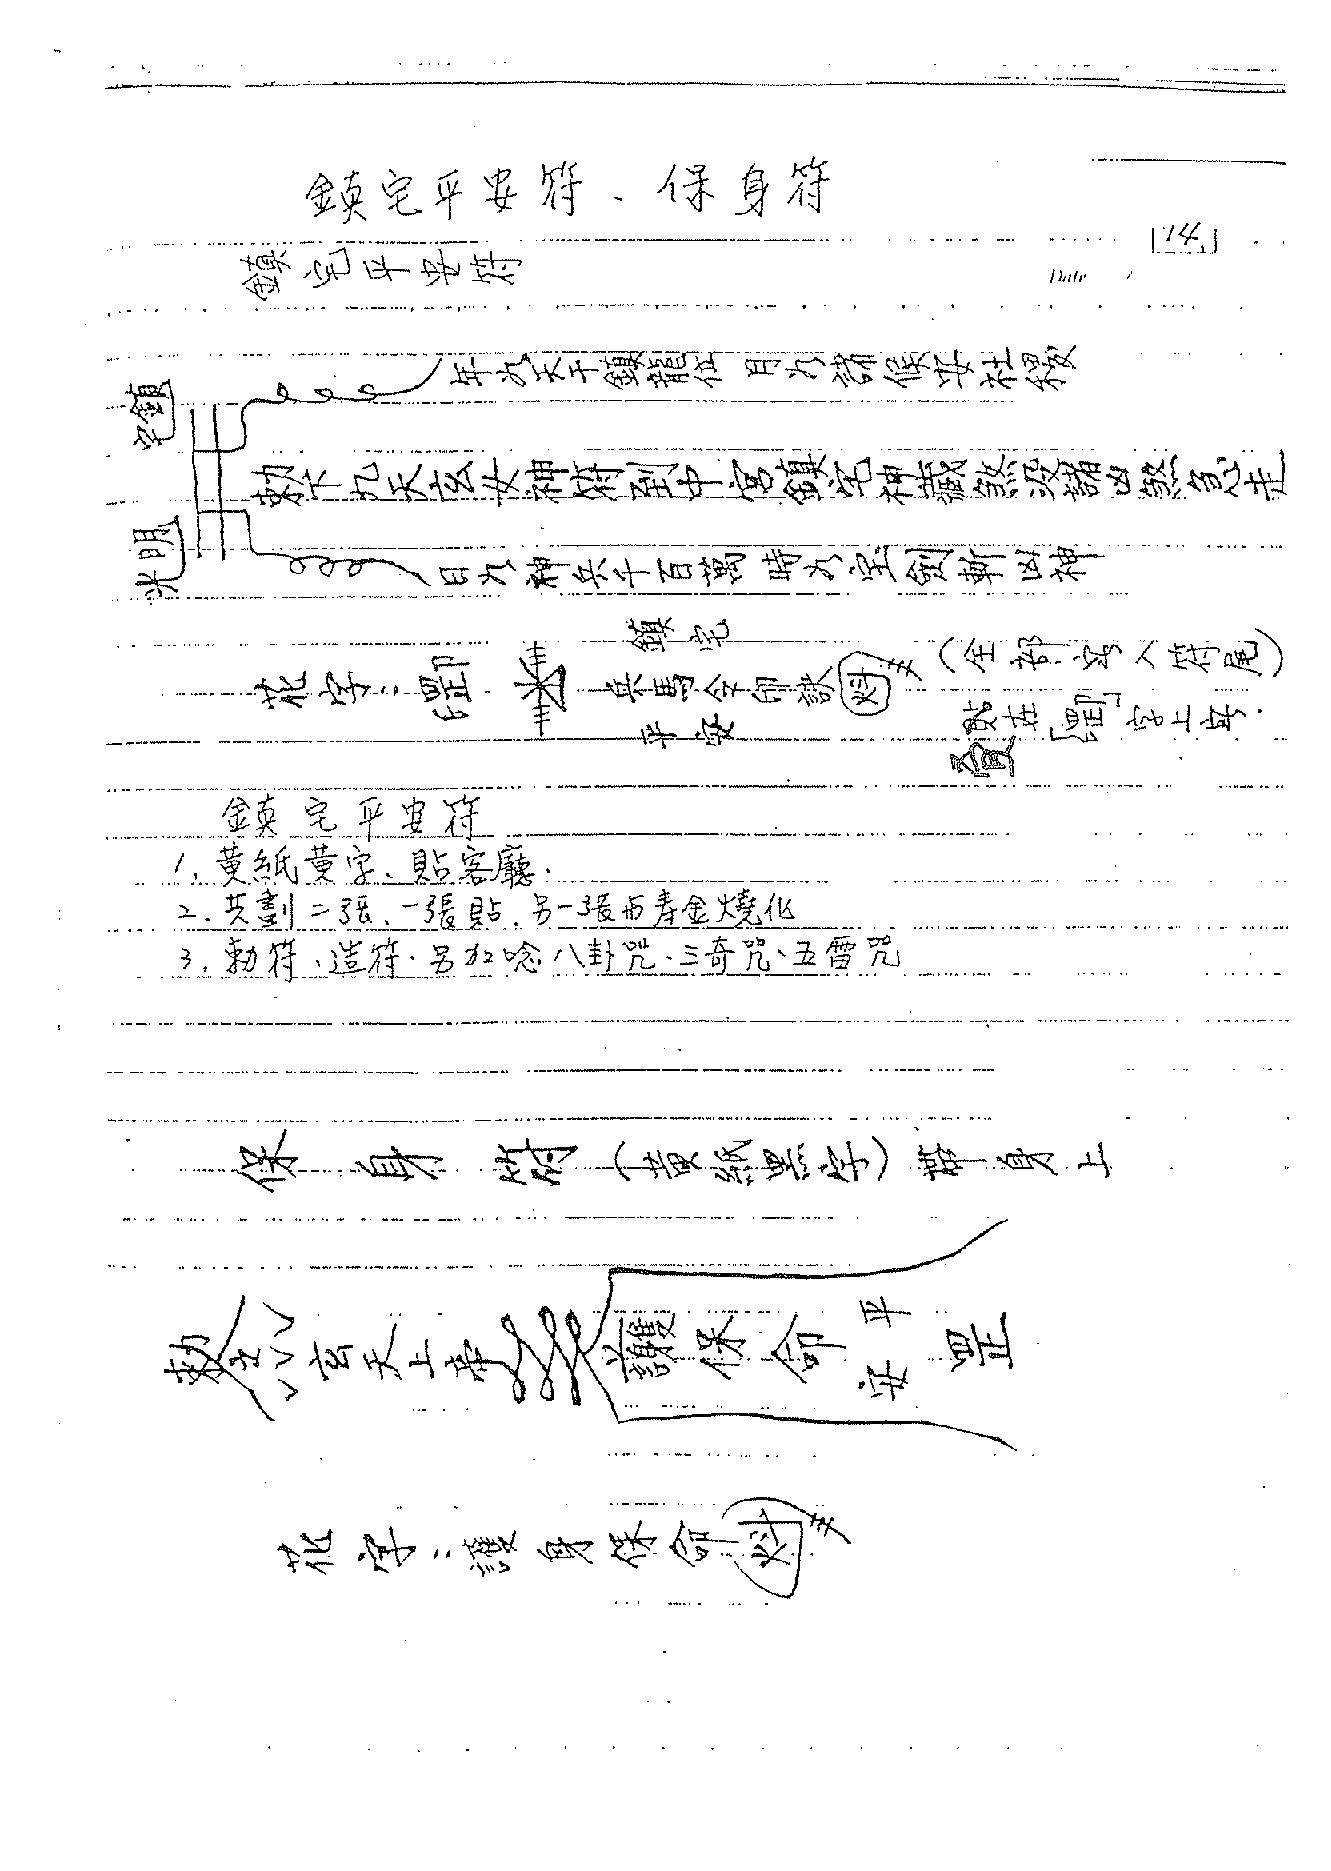 鎮宅平安符、保身符
[14]
鎮宅平安符
Date
年為天千鎮龍位 月為諸侯安社稷
鎮宅
勅下九天玄女神符到中宮鎮宅神藏煞沒諸凶煞急走
光明
日為神兵千百萬 時為宝劍斬凶神
鎮宅
花字:
兵馬令印訣
平安
(全部寫入符尾)
字上耳.
鎮宅平安符
1. 黄紙黄字、貼客廳.
2. 共劃二張、一張貼、另一張而寿金燒化
3. 勅符、造符. 另加唸八卦咒、三奇咒、五雷咒
保身符(黄紙黑字)帶身上
勅 玄天上帝 護保命 平安 罡
花字: 護身保命